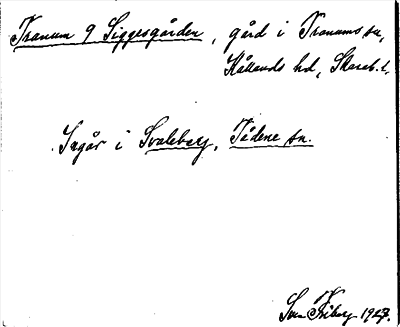 Tranum 9 Siggesgården, gård i Tranums sn,
Kållands hd, Skarab. l.
Ingår i Svaleberg, Tådene sn.
Sven Friberg 1927.